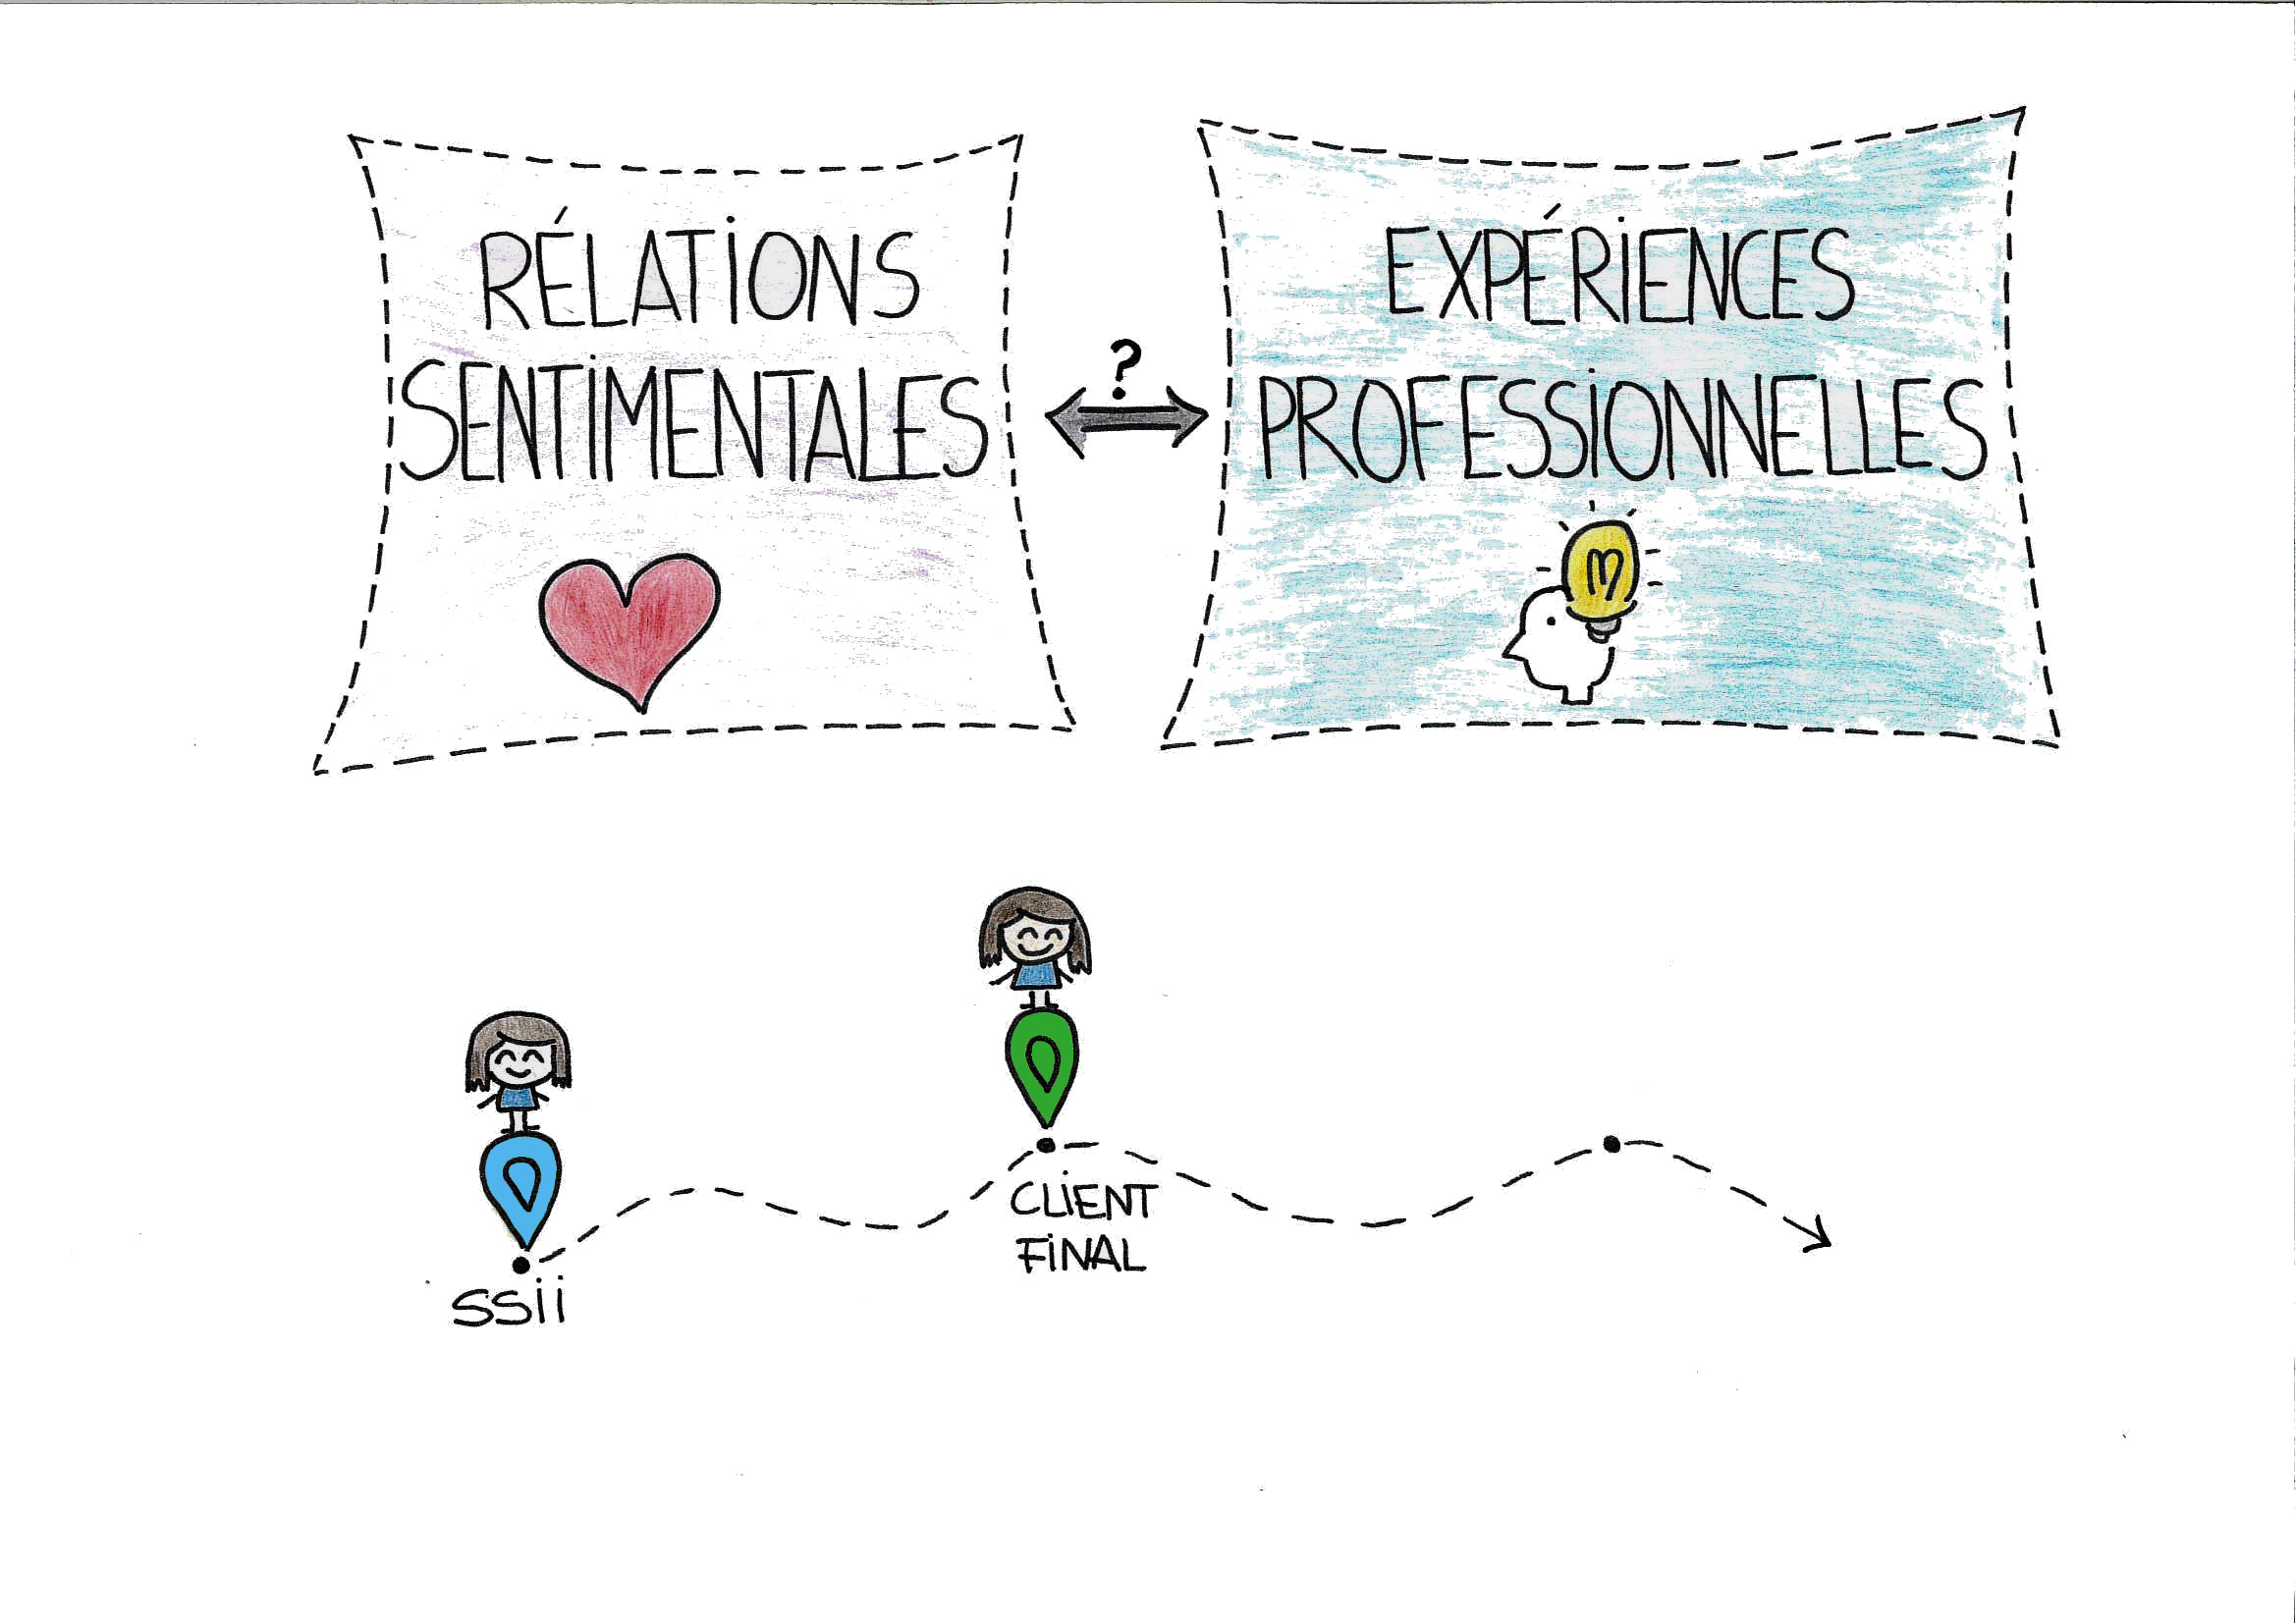 RÉLATIONS
SENTIMENTALES
?
EXPÉRIENCES
PROFESSIONNELLES
CLIENT
FINAL
SSii